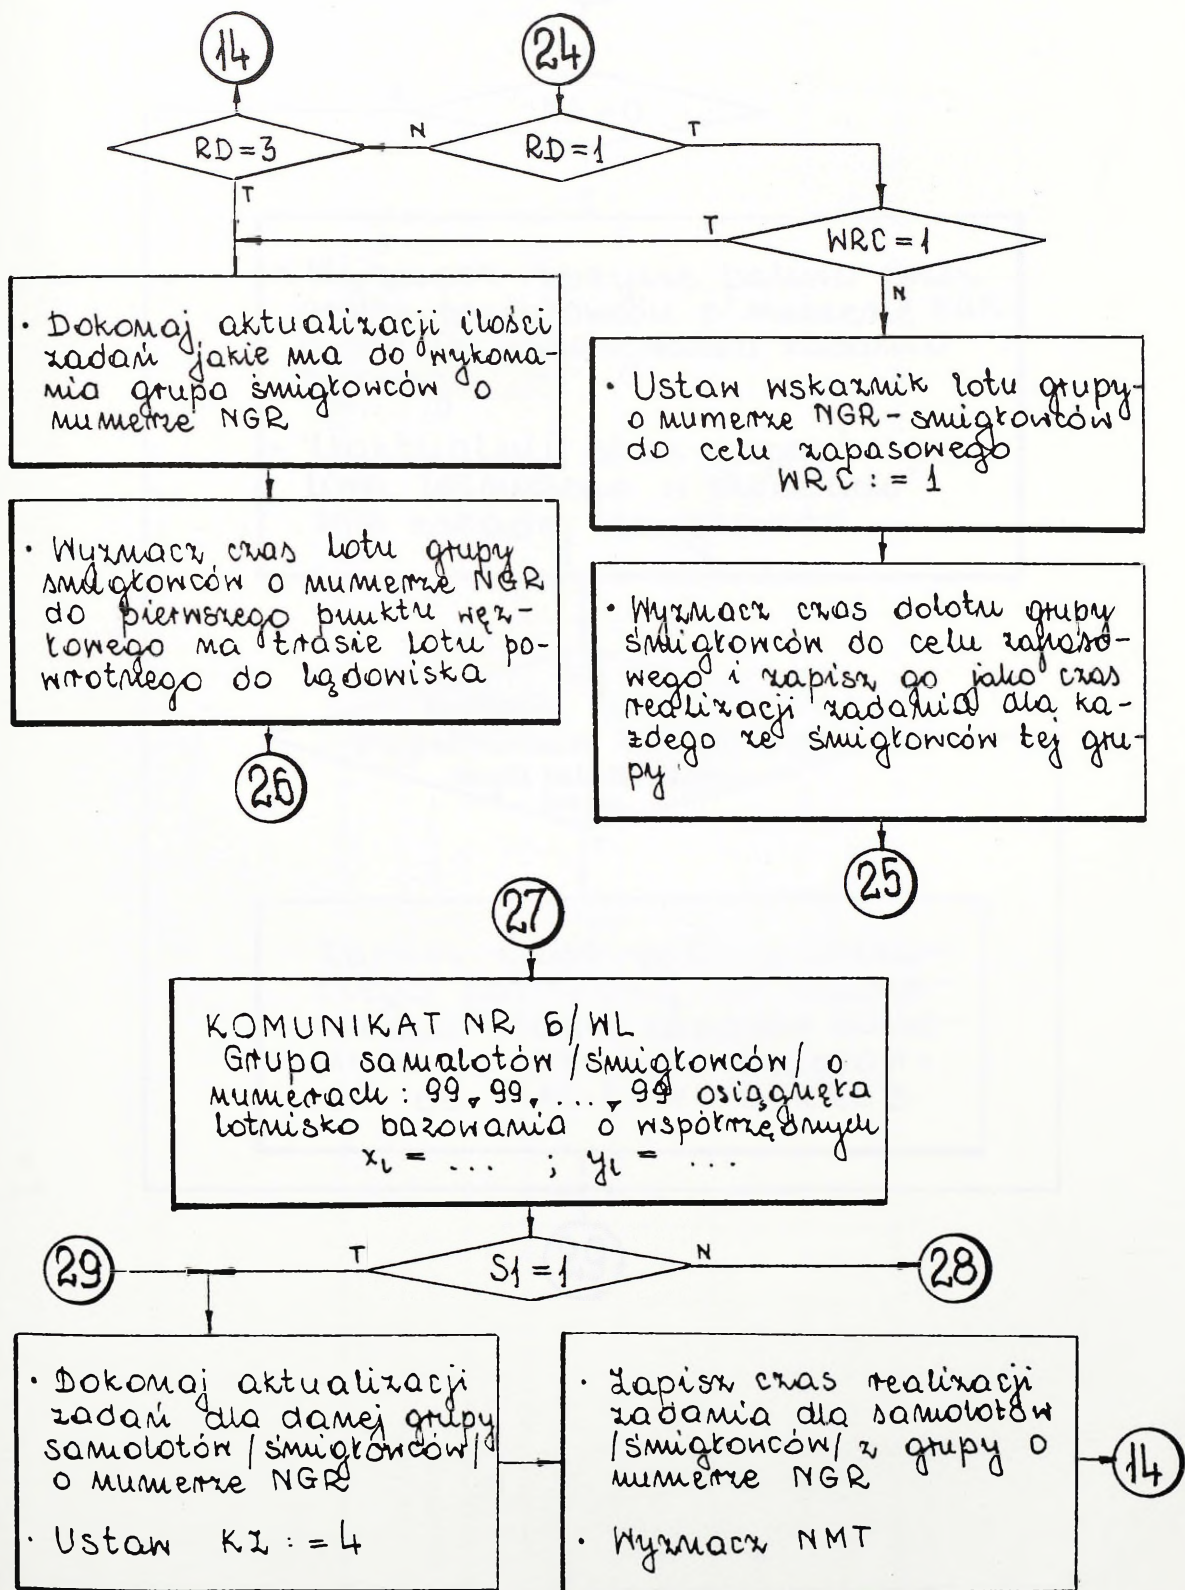 14
24
RD=3
N
RD=1
T
T
T
WRC=1
N
· Dokonaj aktualizacji ilości
zadań jakie ma do wykona-
nia grupa śmigłowców o
numerze NGR
· Ustaw wskaźnik lotu grupy
o numerze NGR-śmigłowców
do celu zapasowego
WRC:=1
· Wyznacz czas lotu grupy
śmigłowców o numerze NGR
do pierwszego punktu węz-
łowego na trasie lotu po-
wrotnego do lądowiska
· Wyznacz czas dolotu grupy
śmigłowców do celu zapaso-
wego i zapisz go jako czas
realizacji zadania dla ka-
żdego ze śmigłowców tej gru-
py
26
25
27
KOMUNIKAT NR 6/WL
Grupa samalotów /śmigłowców/ o
numerach: 99,99,...,99 osiągnęła
lotnisko bazowania o współrzędnych
xl = ... ; yl = ...
29
T
S1=1
N
28
· Dokonaj aktualizacji
zadań dla danej grupy
samolotów /śmigłowców/
o numerze NGR
· Ustaw KZ:=4
· Zapisz czas realizacji
zadania dla samolotów
/śmigłowców/ z grupy o
numerze NGR
· Wyznacz NMT
14